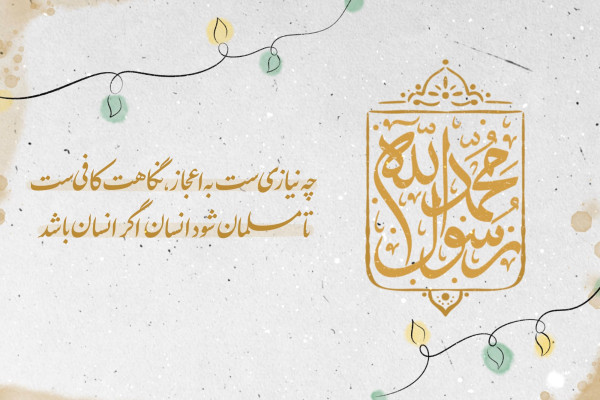 محمد رسول الله
چه نیازی‌ست به اعجاز، نگاهت کافی‌ست
تا مسلمان شود انسان اگر انسان باشد